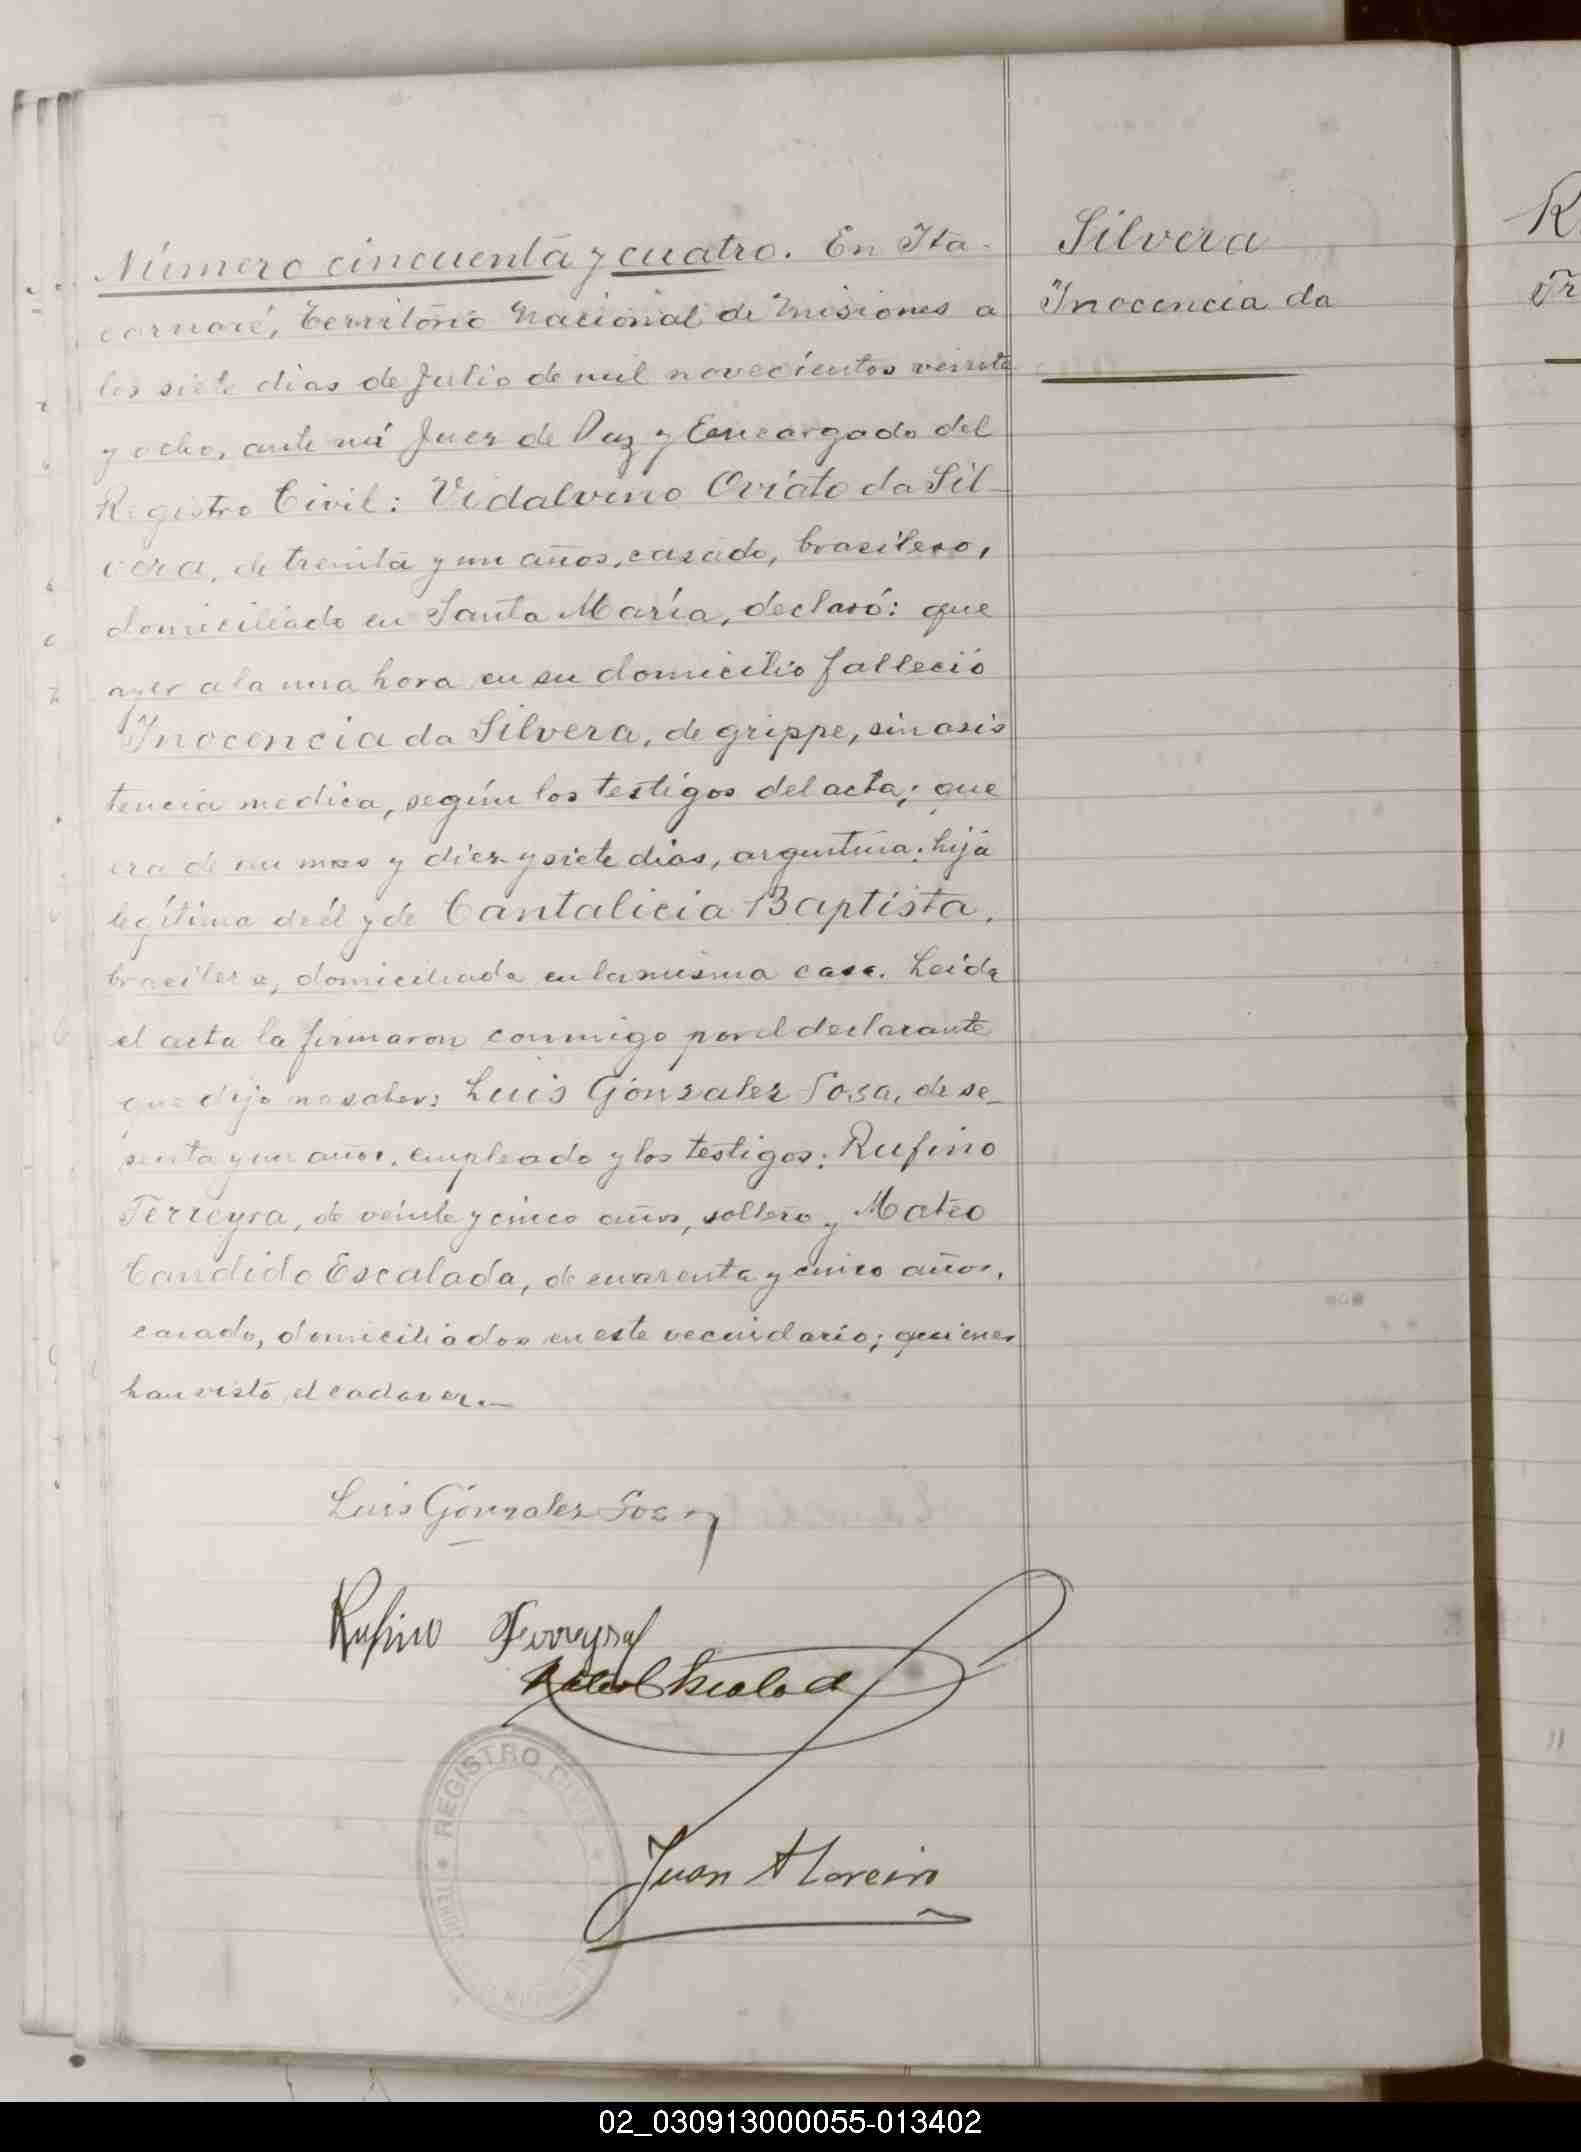 Número cincuenta y cuatro. En Ita-
caruaré, Territorio Nacional de Misiones a
los siete dias de Julio de mil novecientos veinte
y ocho, ante mí Juez de Paz y Encargado del
Registro Civil: Vidalvino Oviáto da Sil-
vera, de treinta y un años, casado, brasilero,
domiciliado en Santa María, declaró: que
ayer a la una hora en su domicilio falleció
Inocencia da Silvera, de grippe, sin asis
tencia medica, según los testigos del acta; que
era de un mes y diez y siete dias, argentina; hija
legítima de él y de Cantalicia Baptista,
brasilera, domiciliada en la misma casa. Leida
el acta la firmaron conmigo por el declarante
que dijo no saber: Luis Gonzalez Sosa, de se-
senta y un años, empleado y los testigos: Rufino
Ferreyra, de veinte y cinco años, soltero y Mateo
Candido Escalada, de cuarenta y cinco años,
casado, domiciliados en este vecindario; quienes
han visto el cadaver.—
Silvera
Inocencia da
Luis Gonzalez Sosa
Rufino Ferreyra
Mateo C Escalada
REGISTRO CIVIL
Juan Moreira
R
Fr
02_030913000055-013402